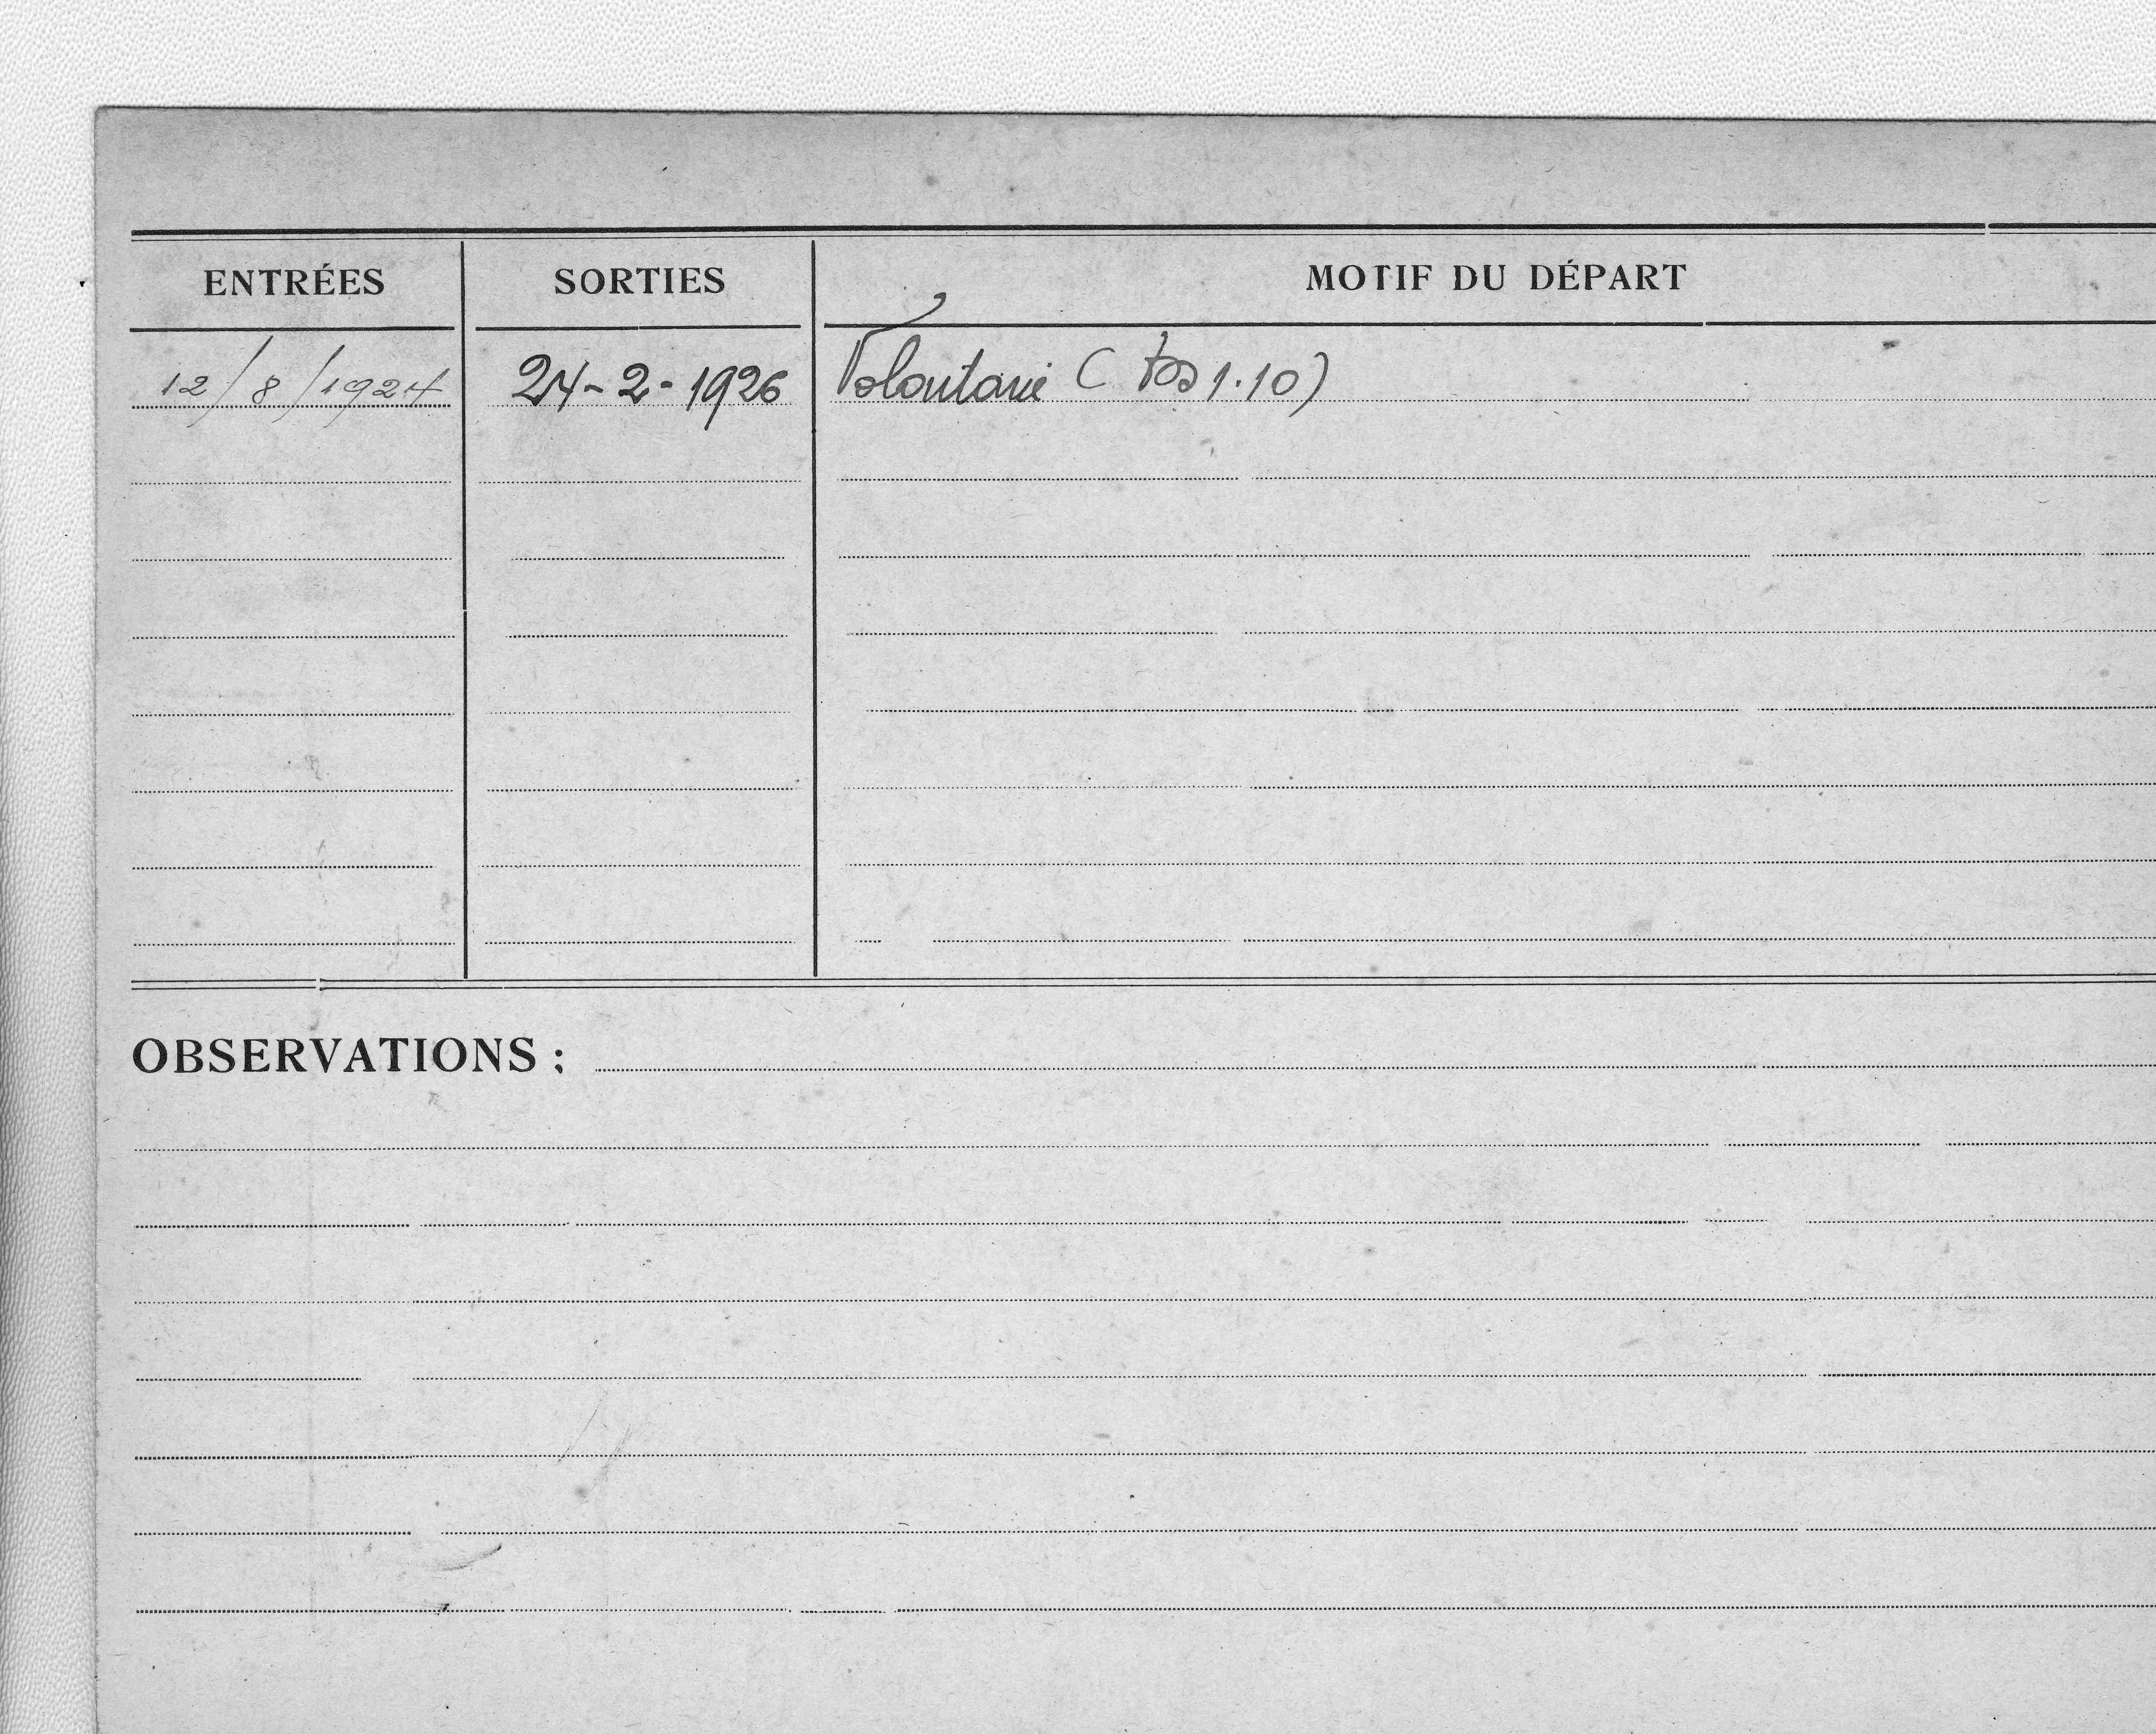 ENTRÉES SORTIES MOTIF DU DÉPART
12/8/1924 24-2-1926 Volontaire ( 1.10)
OBSERVATIONS :